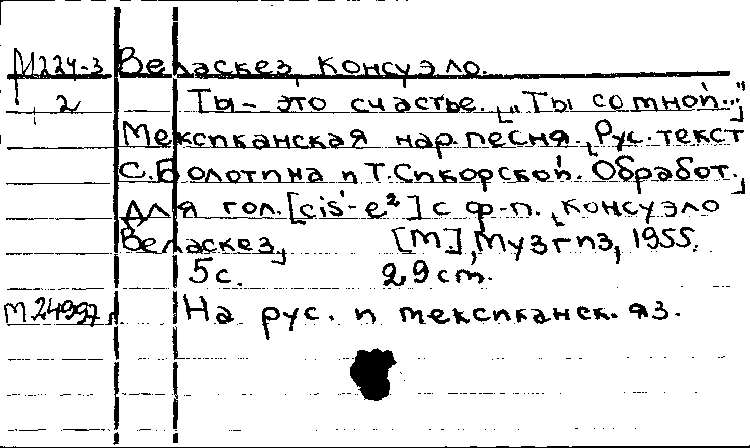 М224-3 Веласкез, Консуэло.
2 Ты - это счастье. ["Ты со мной.."]
Мексиканская нар. песня. [Рус. текст
С. Болотина и Т. Сикорской. Обработ.]
для гол. [cis'-e²] с ф-п. [Консуэло
Веласкез] [М], Музгиз, 1955.
5 с. 29 см.
М24997 На рус. и мексиканск. яз.